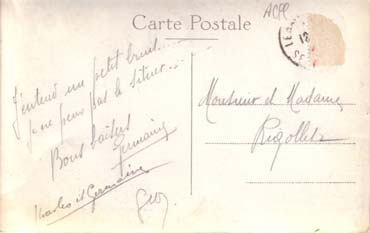 Carte Postale
ACPC
J'entend un petit bruit...
je ne peux pas le situer...
Bons baisers
Germaine
Charles et Germaine
Geo
Monsieur et Madame
Rigollet